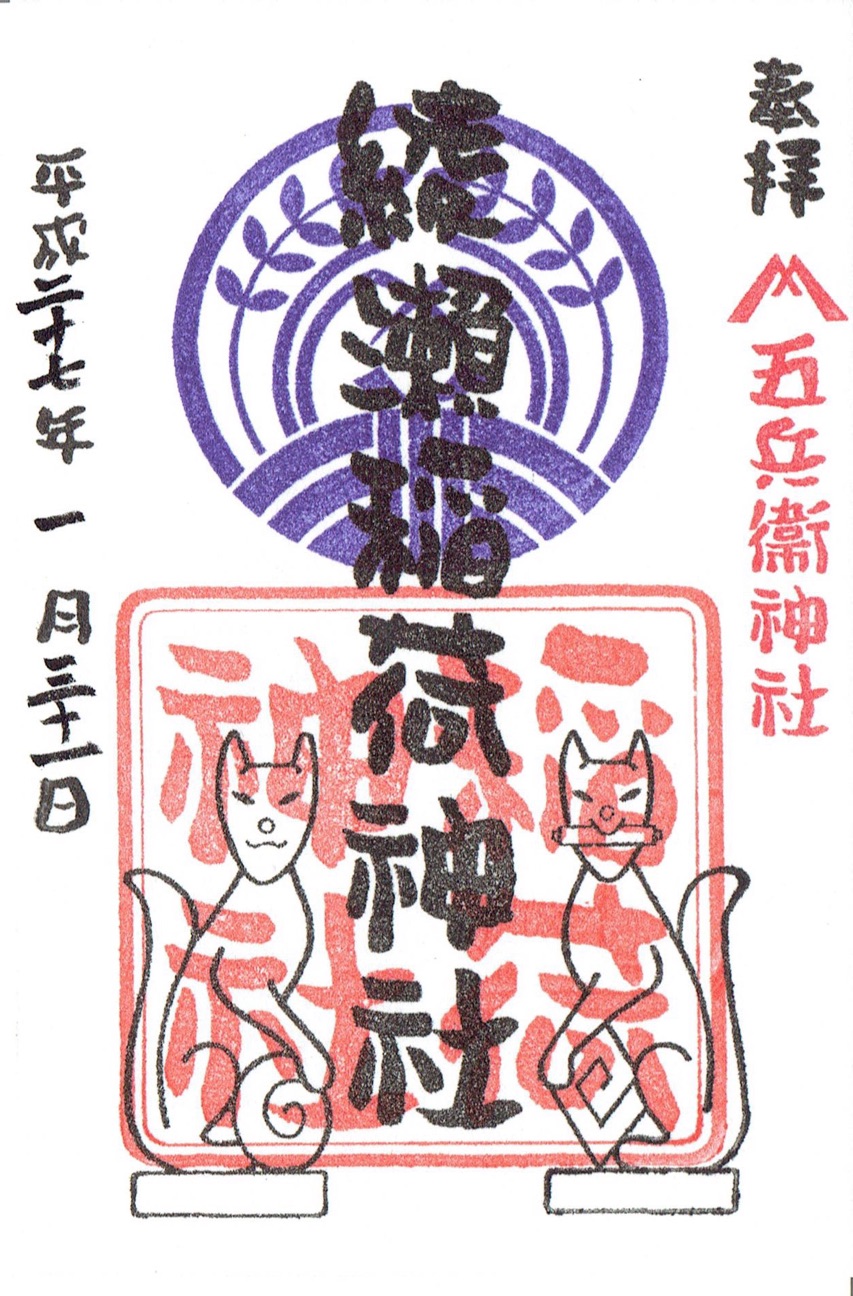 奉拝
五兵衛神社
綾瀬稲荷神社
稲荷
神社
平成二十七年一月三十一日